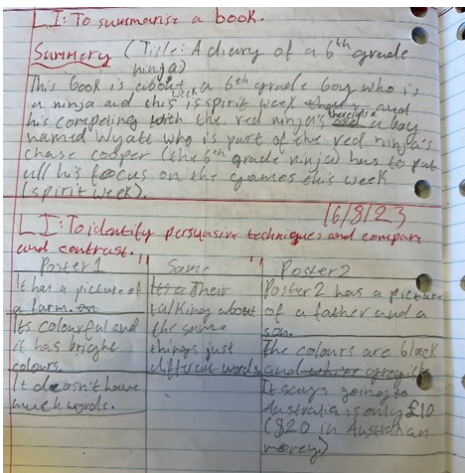 LI: To summarise a book.
Summery (Title: A diary of a 6th grade
ninja)
This book is about a 6th grade boy who is
a ninja and this is spirit week and
week
his competing with the red ninja's a boy
there's also
named Wyatt who is part of the red ninja's
chase cooper (the 6th grade ninja) has to put
all his focus on the games this week
(spirit week).
16/8/23
LI: To identify persuasive techniques and compare
and contrast.
Poster 1 " Same " Poster 2
It has a picture of
a farm. on
Its colourful and
it has bright
colours.
It doesn't have
much words.
It's a Their
talking about
the same
things just
different words
Poster 2 has a picture
of a father and a
son.
The colours are black
and
It says going to
Australia is only £10
($20 in Australian
money)